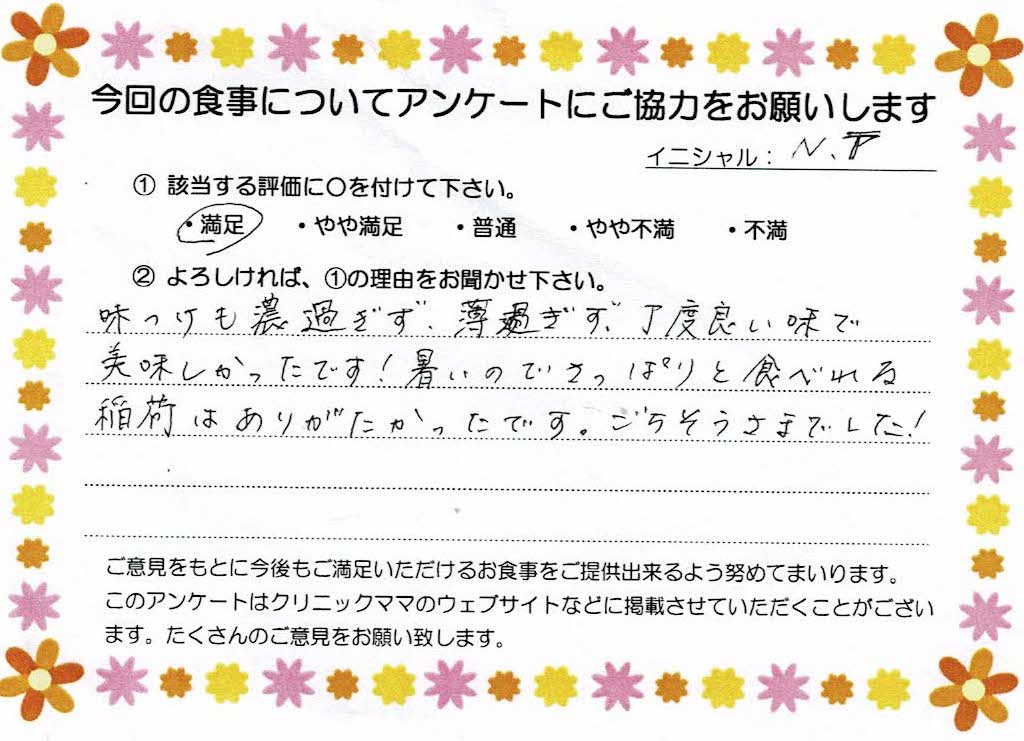 今回の食事についてアンケートにご協力をお願いします
イニシャル： N.T
① 該当する評価に○を付けて下さい。
・満足 ・やや満足 ・普通 ・やや不満 ・不満
② よろしければ、①の理由をお聞かせ下さい。
味つけも濃過ぎず、薄過ぎず、丁度良い味で
美味しかったです！暑いのでさっぱりと食べれる
稲荷はありがたかったです。ごちそうさまでした！
ご意見をもとに今後もご満足いただけるお食事をご提供出来るよう努めてまいります。
このアンケートはクリニックママのウェブサイトなどに掲載させていただくことがござい
ます。たくさんのご意見をお願い致します。